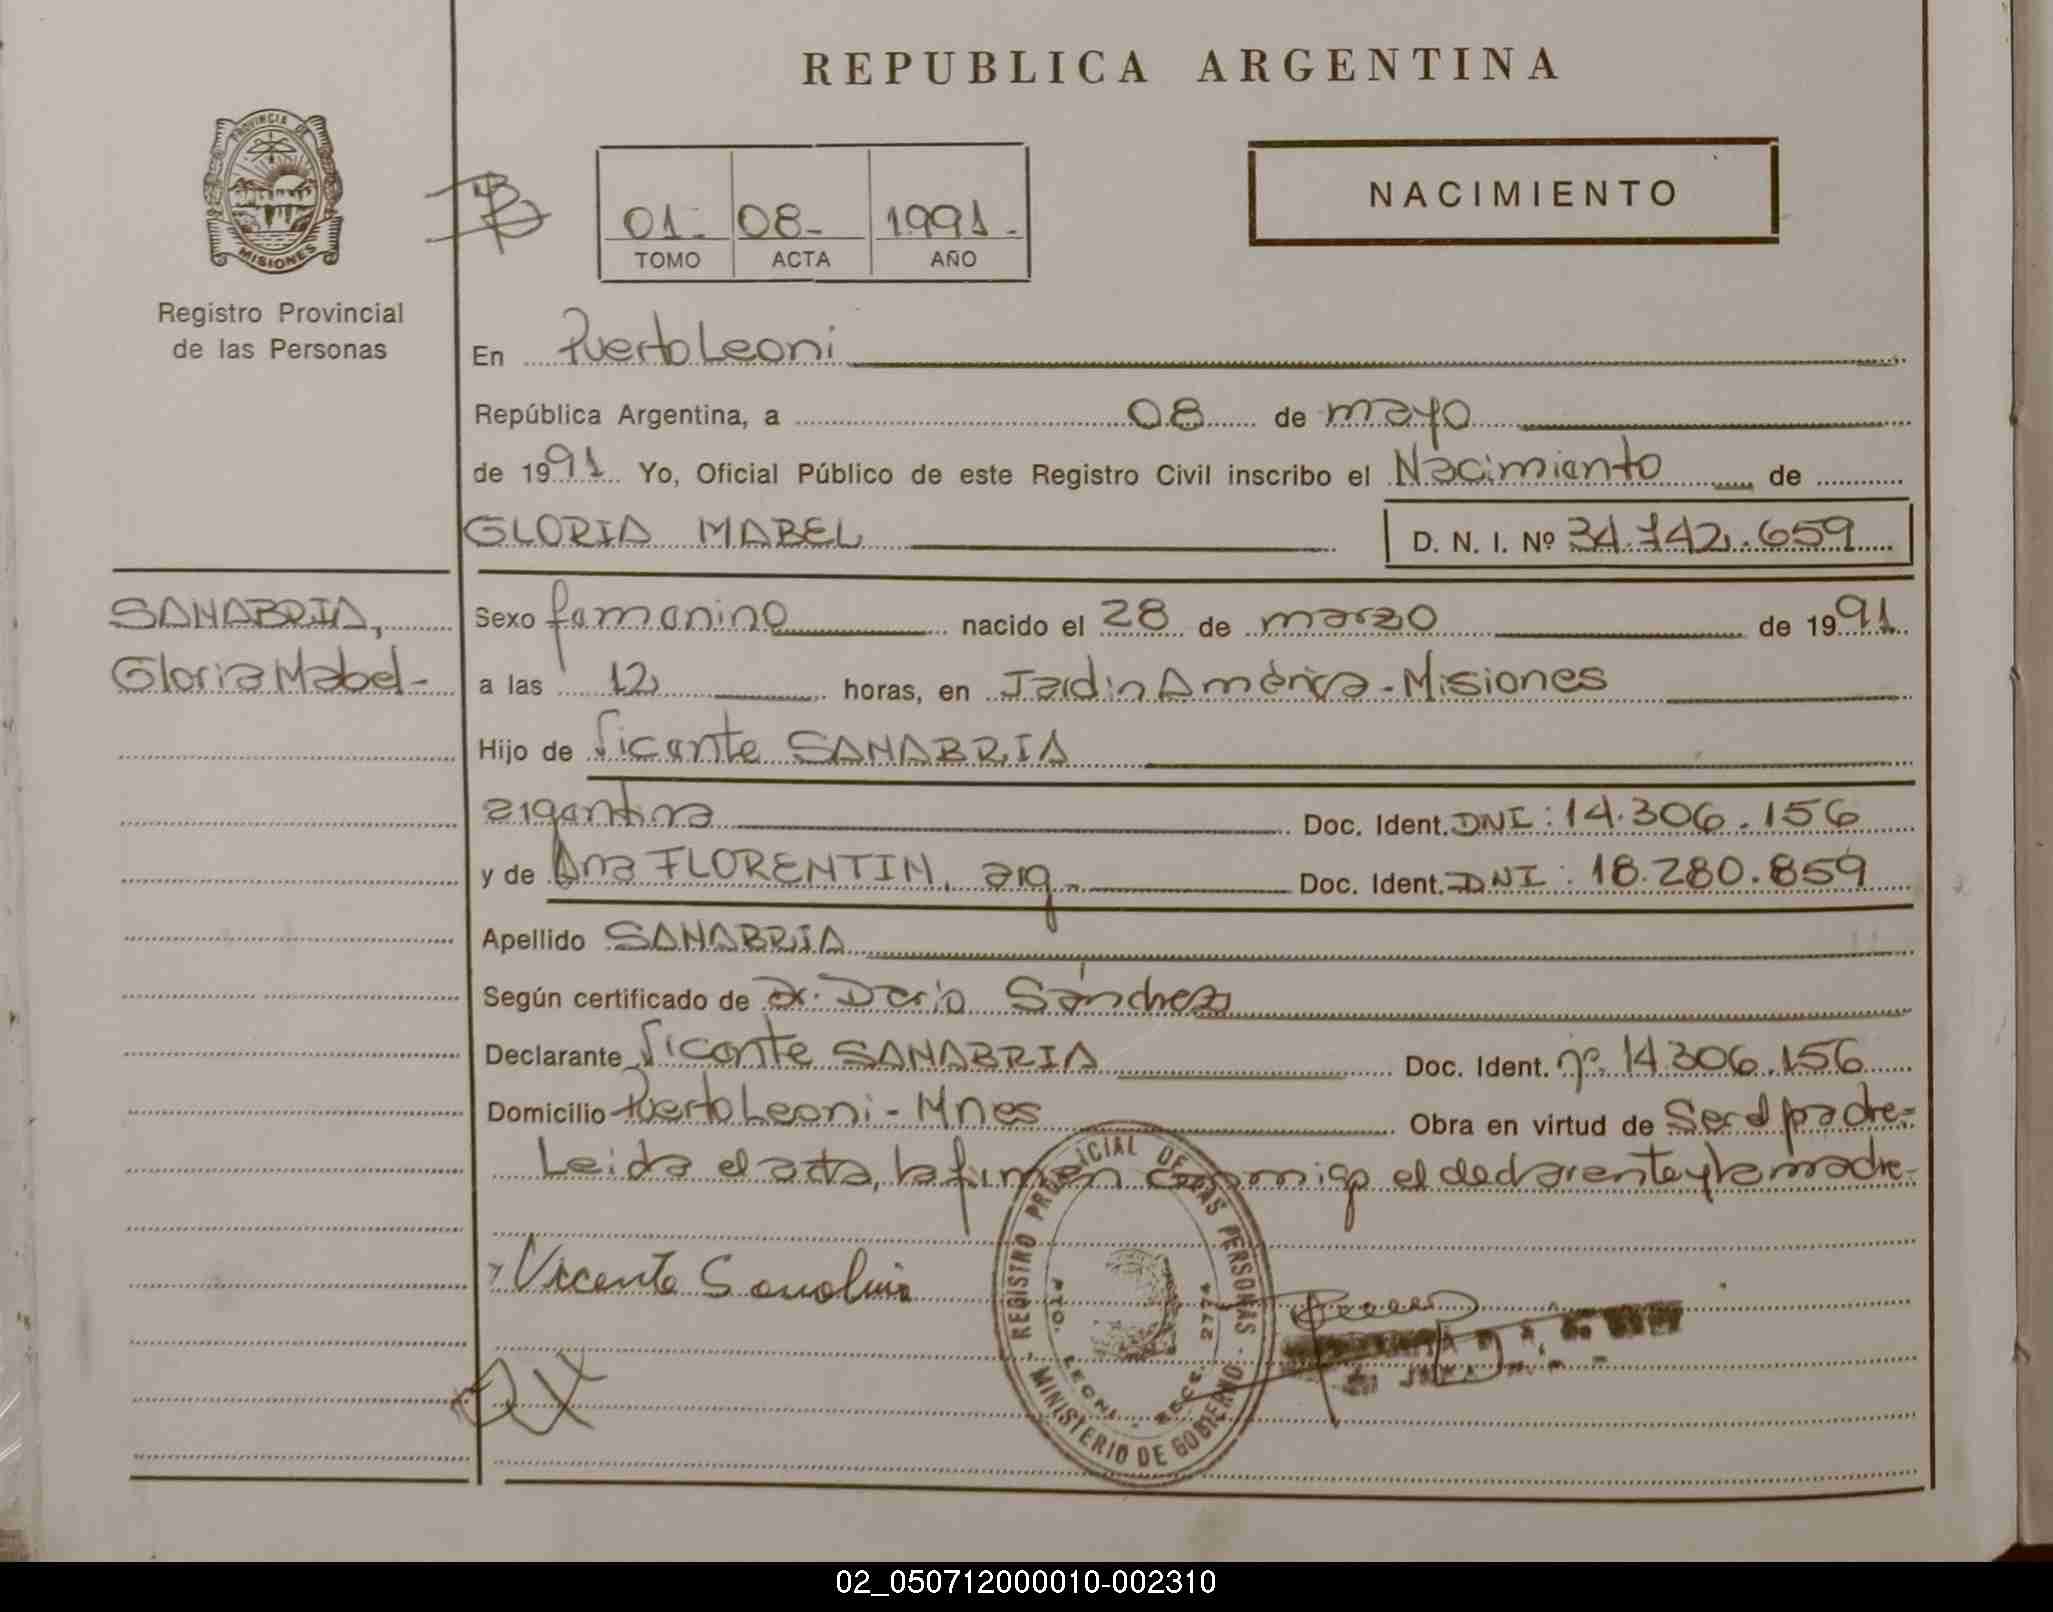 REPUBLICA ARGENTINA
PROVINCIA DE
MISIONES
Registro Provincial
de las Personas
01- 08- 1991-
TOMO ACTA AÑO
NACIMIENTO
En Puerto Leoni
República Argentina, a 08 de mayo
de 1991 Yo, Oficial Público de este Registro Civil inscribo el Nacimiento de
GLORIA MABEL D. N. I. Nº 34.742.659
SANABRIA,
Gloria Mabel-
Sexo femenino nacido el 28 de marzo de 1991
a las 12 horas, en Jardin América - Misiones
Hijo de Vicente SANABRIA
argentina Doc. Ident. DNI: 14.306.156
y de Ana FLORENTIN, arg- Doc. Ident. DNI: 18.280.859
Apellido SANABRIA
Según certificado de Dr. Dario Sánchez
Declarante Vicente SANABRIA Doc. Ident. nº. 14.306.156
Domicilio Puerto Leoni - Mnes Obra en virtud de Ser el padre-
Leida el acta, la firman conmigo el declarante y la madre-
Vicente Sanabria
REGISTRO PROVINCIAL DE LAS PERSONAS
MINISTERIO DE GOBIERNO
PTO. LEONI - SECC. 2774
02_050712000010-002310